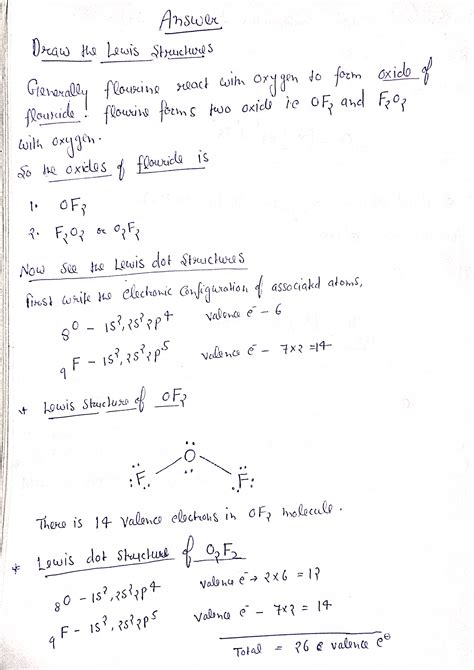 Answer
Draw the Lewis Structures
Generally flourine react with oxygen to form oxide of
flouride. flourine forms two oxide ie OF₂ and F₂O₂
with oxygen.
So the oxides of flouride is
1. OF₂
2. F₂O₂ or O₂F₂
Now see the Lewis dot Structures
first write the electronic configuration of associated atoms,
₈O – 1s², 2s² 2p⁴ valence e⁻ – 6
₉F – 1s², 2s² 2p⁵ valence e⁻ – 7×2 = 14
* Lewis structure of OF₂
O
F F
There is 14 valence electrons in OF₂ molecule.
* Lewis dot structure of O₂F₂
₈O – 1s², 2s² 2p⁴ valence e⁻ → 2×6 = 12
₉F – 1s², 2s² 2p⁵ valence e⁻ – 7×2 = 14
Total = 26 e valence e⁻